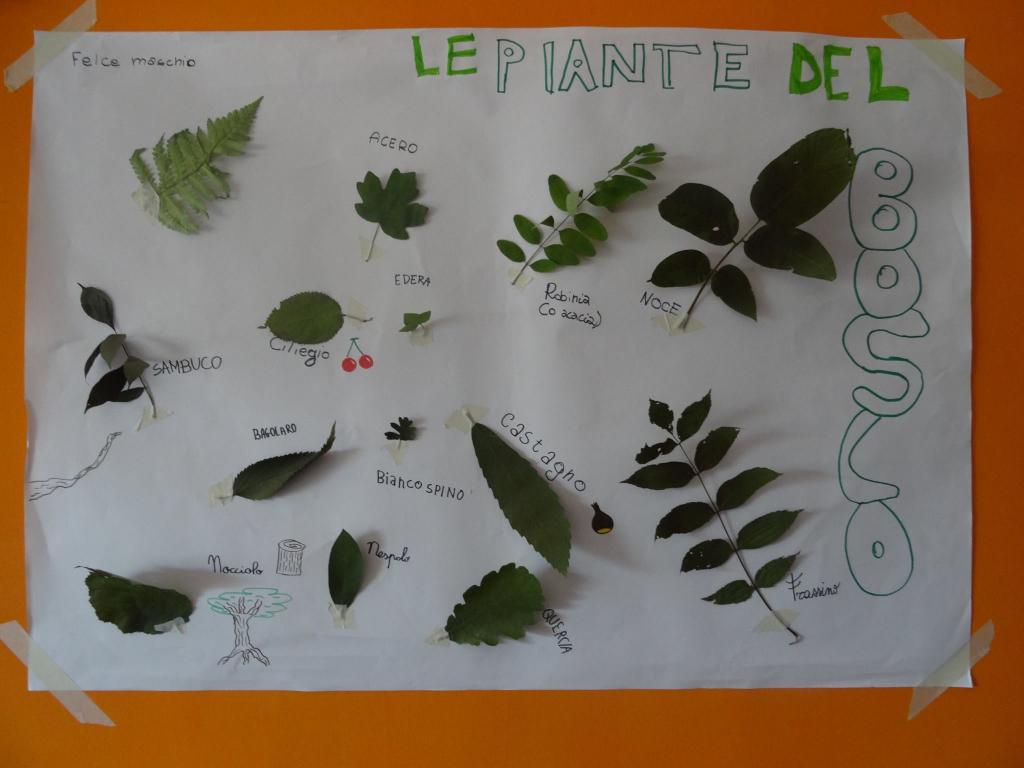 LE PIANTE DEL
BOSCO
Felce maschio
ACERO
Robinia
(o acacia)
NOCE
EDERA
Ciliegio
SAMBUCO
BAGOLARO
BiancoSPINO
Castagno
Nocciolo
Nespolo
QUERCIA
Frassino